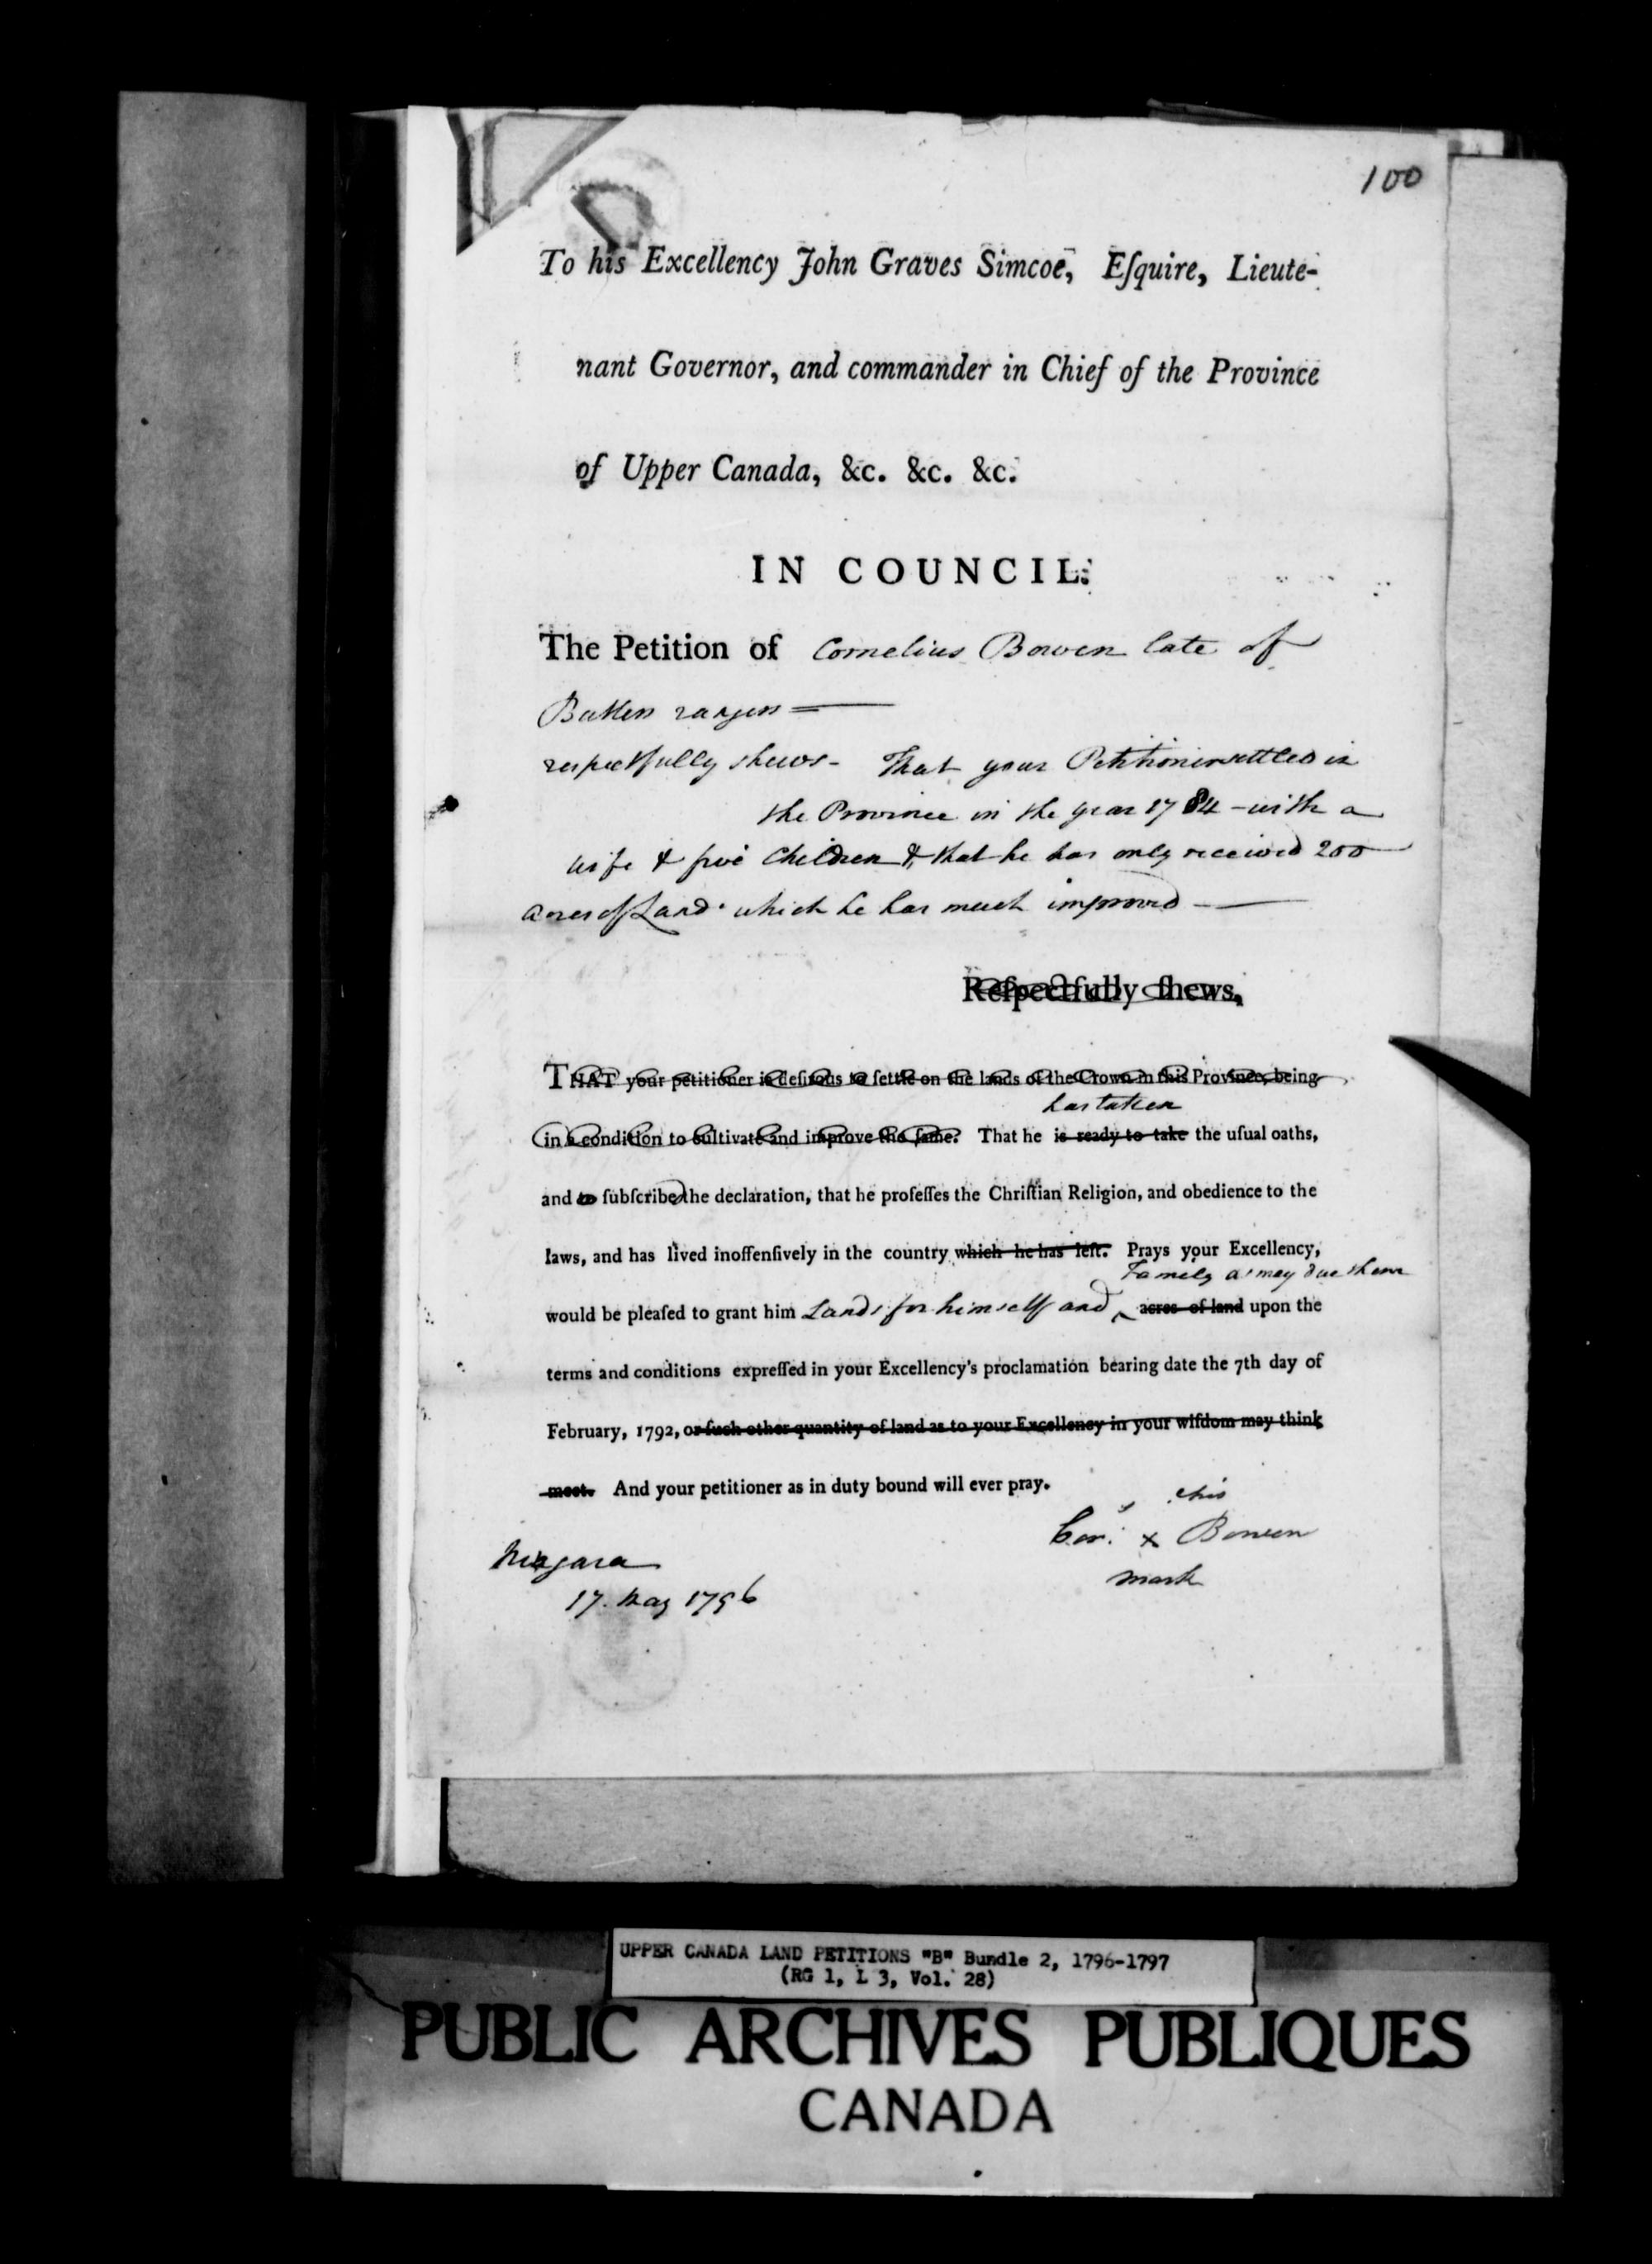 100
To his Excellency John Graves Simcoe, Eſquire, Lieute-
nant Governor, and commander in Chief of the Province
of Upper Canada, &c. &c. &c.
IN COUNCIL:
The Petition of Cornelius Bowen late of
Butlers rangers
respectfully shews - That your Petitioner settled in
the Province in the year 1784 - with a
wife & five Children & that he has only received 200
acres of Land which he has much improved
Reſpectfully ſhews,
THAT your petitioner is deſirous to ſettle on the lands of the Crown in this Province, being
has taken
in a condition to cultivate and improve the ſame. That he is ready to take the uſual oaths,
and to ſubſcribe the declaration, that he profeſſes the Chriſtian Religion, and obedience to the
laws, and has lived inoffenſively in the country which he has left. Prays your Excellency,
Family as may due them
would be pleaſed to grant him Lands for himself and acres of land upon the
terms and conditions expreſſed in your Excellency's proclamation bearing date the 7th day of
February, 1792, or ſuch other quantity of land as to your Excellency in your wiſdom may think
meet. And your petitioner as in duty bound will ever pray.
his
Cor: x Bowen
mark
Niagara
17. May 1796
UPPER CANADA LAND PETITIONS "B" Bundle 2, 1796-1797
(RG 1, L 3, Vol. 28)
PUBLIC ARCHIVES PUBLIQUES
CANADA